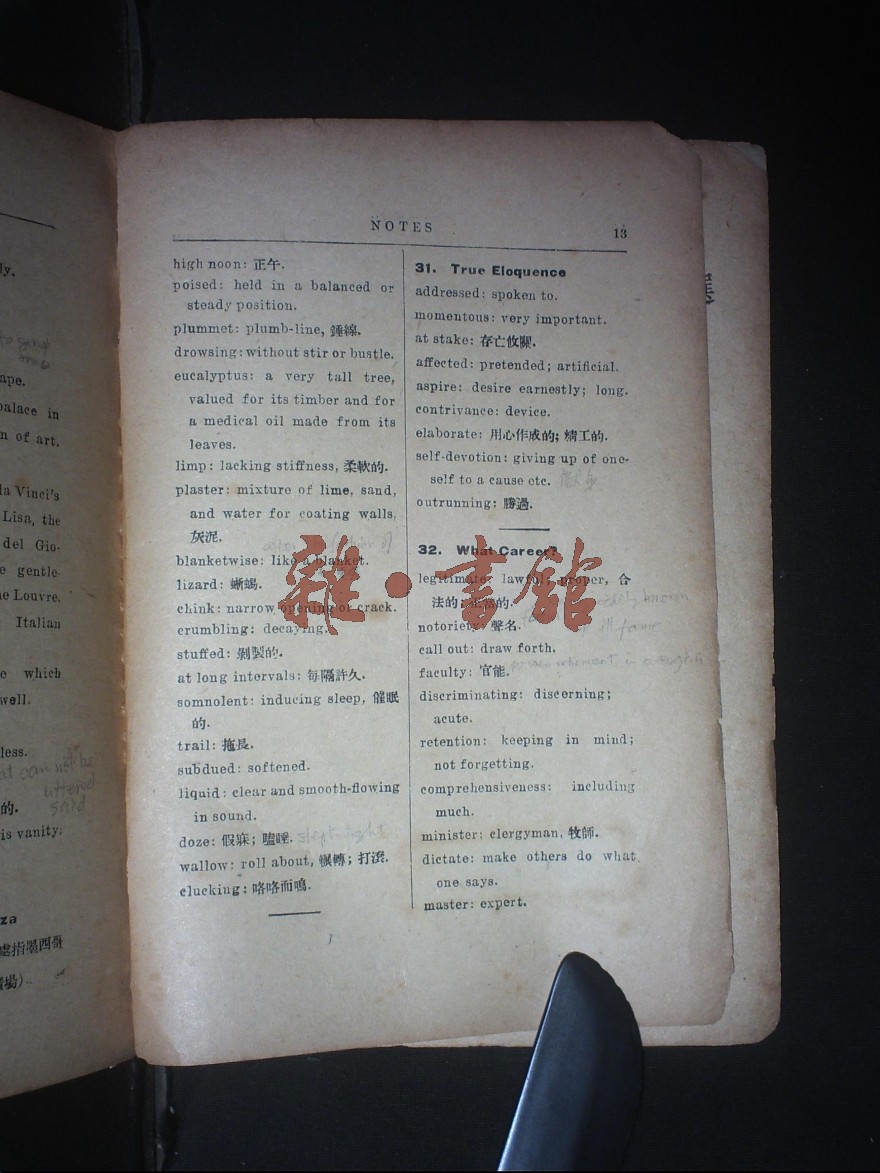 ly.
ape.
palace in
n of art.
la Vinci's
Lisa, the
del Gio-
e gentle-
he Louvre,
Italian
e which
well.
less.
at can not be
uttered
said
的.
is vanity.
za
處指墨西哥
場)
NOTES
13
high noon: 正午.
poised: held in a balanced or
steady position.
plummet: plumb-line, 錘線.
drowsing: without stir or bustle.
eucalyptus: a very tall tree,
valued for its timber and for
a medical oil made from its
leaves.
limp: lacking stiffness, 柔軟的.
plaster: mixture of lime, sand,
and water for coating walls,
灰泥.
blanketwise: like a blanket.
lizard: 蜥蝪.
chink: narrow opening or crack.
crumbling: decaying.
stuffed: 剝製的.
at long intervals: 每隔許久.
somnolent: inducing sleep, 催眠
的.
trail: 拖長.
subdued: softened.
liquid: clear and smooth-flowing
in sound.
doze: 假寐; 瞌睡. slept light
wallow: roll about, 輾轉; 打滾.
clucking: 咯咯而鳴.
31. True Eloquence
addressed: spoken to.
momentous: very important.
at stake: 存亡攸關.
affected: pretended; artificial.
aspire: desire earnestly; long.
contrivance: device.
elaborate: 用心作成的; 精工的.
self-devotion: giving up of one-
self to a cause etc.
outrunning: 勝過.
32. What Career?
legitimate: lawful; proper, 合
法的; 正當的.
notoriety: 聲名.
call out: draw forth.
faculty: 官能.
discriminating: discerning;
acute.
retention: keeping in mind;
not forgetting.
comprehensiveness: including
much.
minister: clergyman, 牧師.
dictate: make others do what
one says.
master: expert.
雜·書館